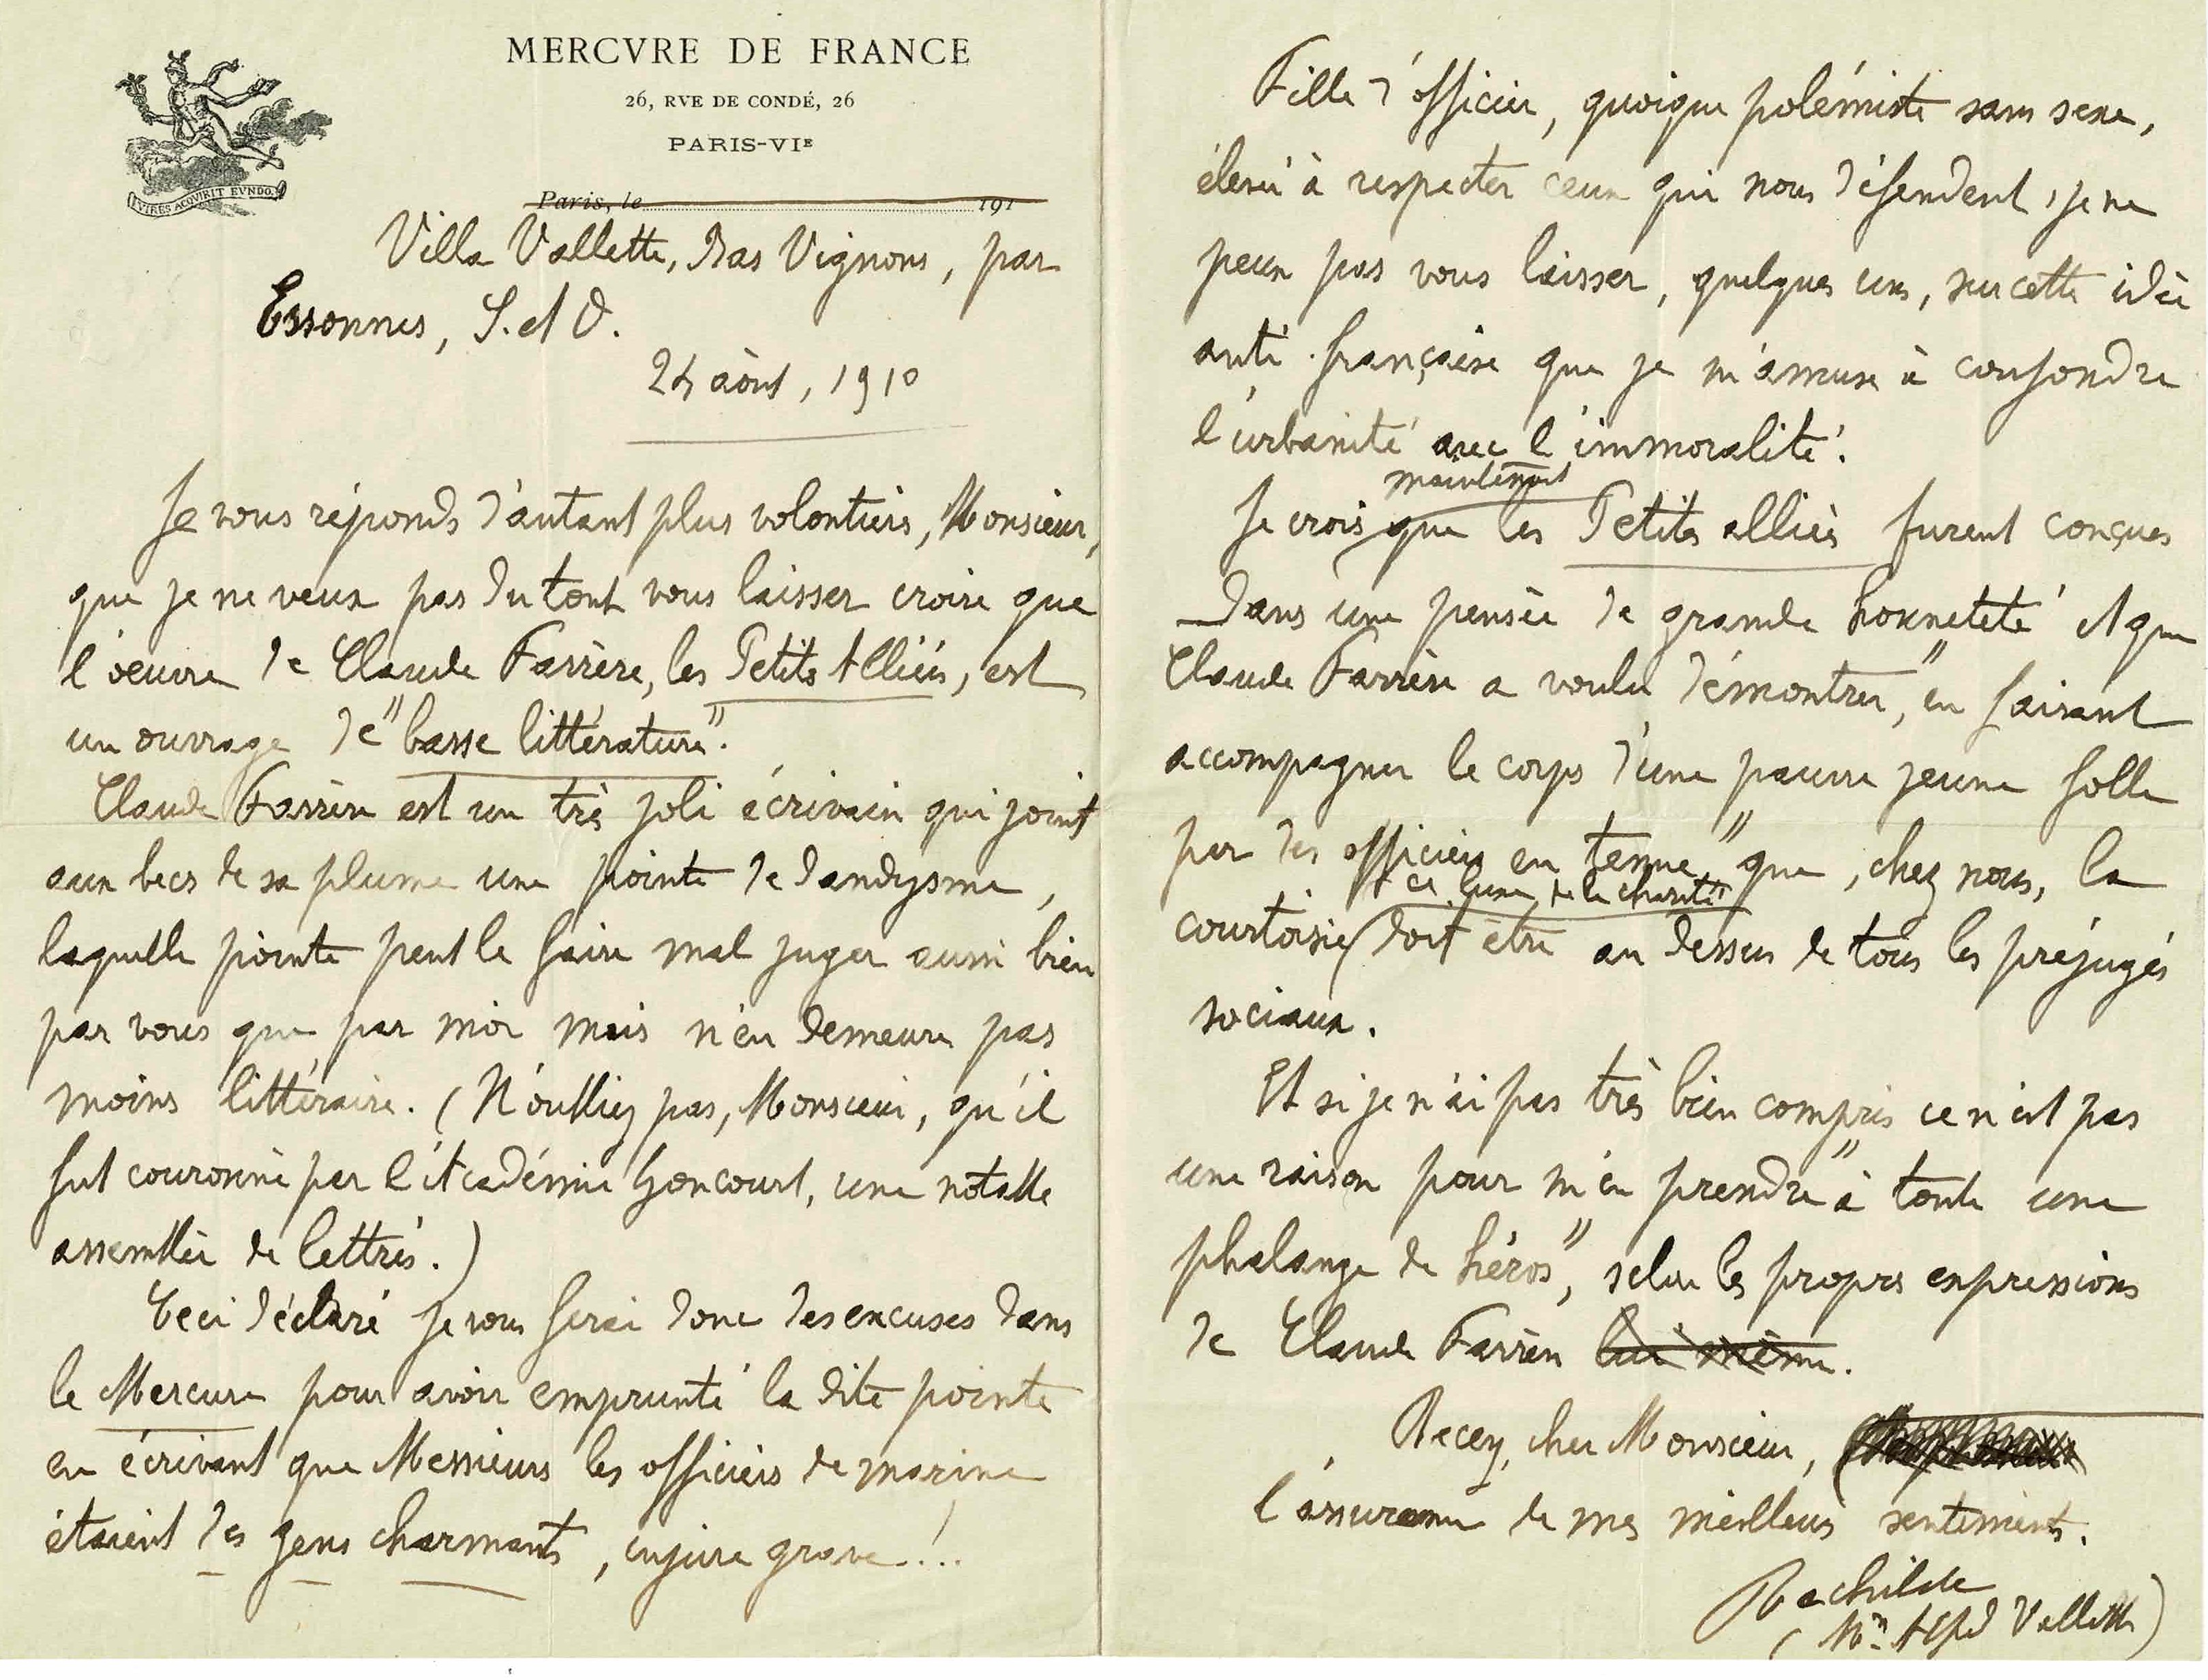 MERCVRE DE FRANCE
26, RVE DE CONDÉ, 26
PARIS-VIE
VIRES ACQVIRIT EVNDO
Paris, le 191
Villa Vallette, Bas Vignons, par
Essonnes, S. et O.
24 août, 1910
Je vous réponds d'autant plus volontiers, Monsieur,
que je ne veux pas du tout vous laisser croire que
l'oeuvre de Claude Farrère, les Petites Alliées, est
un ouvrage de "basse littérature".
Claude Farrère est un très joli écrivain qui joint
aux becs de sa plume une pointe de dandysme,
laquelle pointe peut le faire mal juger aussi bien
par vous que par moi mais n'en demeure pas
moins littéraire. (N'oubliez pas, Monsieur, qu'il
fut couronné par l'Académie Goncourt, une notable
assemblée de lettrés.)
Ceci déclaré je vous ferai donc des excuses dans
le Mercure pour avoir emprunté la dite pointe
en écrivant que Messieurs les officiers de marine
étaient des gens charmants, injure grave!..
Fille d'officier, quoique polémiste sans sexe,
élevée à respecter ceux qui nous défendent, je ne
peux pas vous laisser, quelques uns, sur cette idée
anti-française que je m'amuse à confondre
l'urbanité avec l'immoralité.
maintenant
Je crois que les Petites alliées furent conçues
dans une pensée de grande honnêteté et que
Claude Farrère a voulu démontrer, "en faisant
accompagner le corps d'une pauvre jeune folle
par des officiers en tenue" que, chez nous, la
et ce luxe de la charité
courtoisie doit être au dessus de tous les préjugés
sociaux.
Et si je n'ai pas très bien compris ce n'est pas
une raison pour m'en prendre "à toute une
phalange de héros", selon les propres expressions
de Claude Farrère lui même.
Recevez, cher Monsieur,
l'assurance de mes meilleurs sentiments.
Rachilde
(Mme Alfred Vallette)